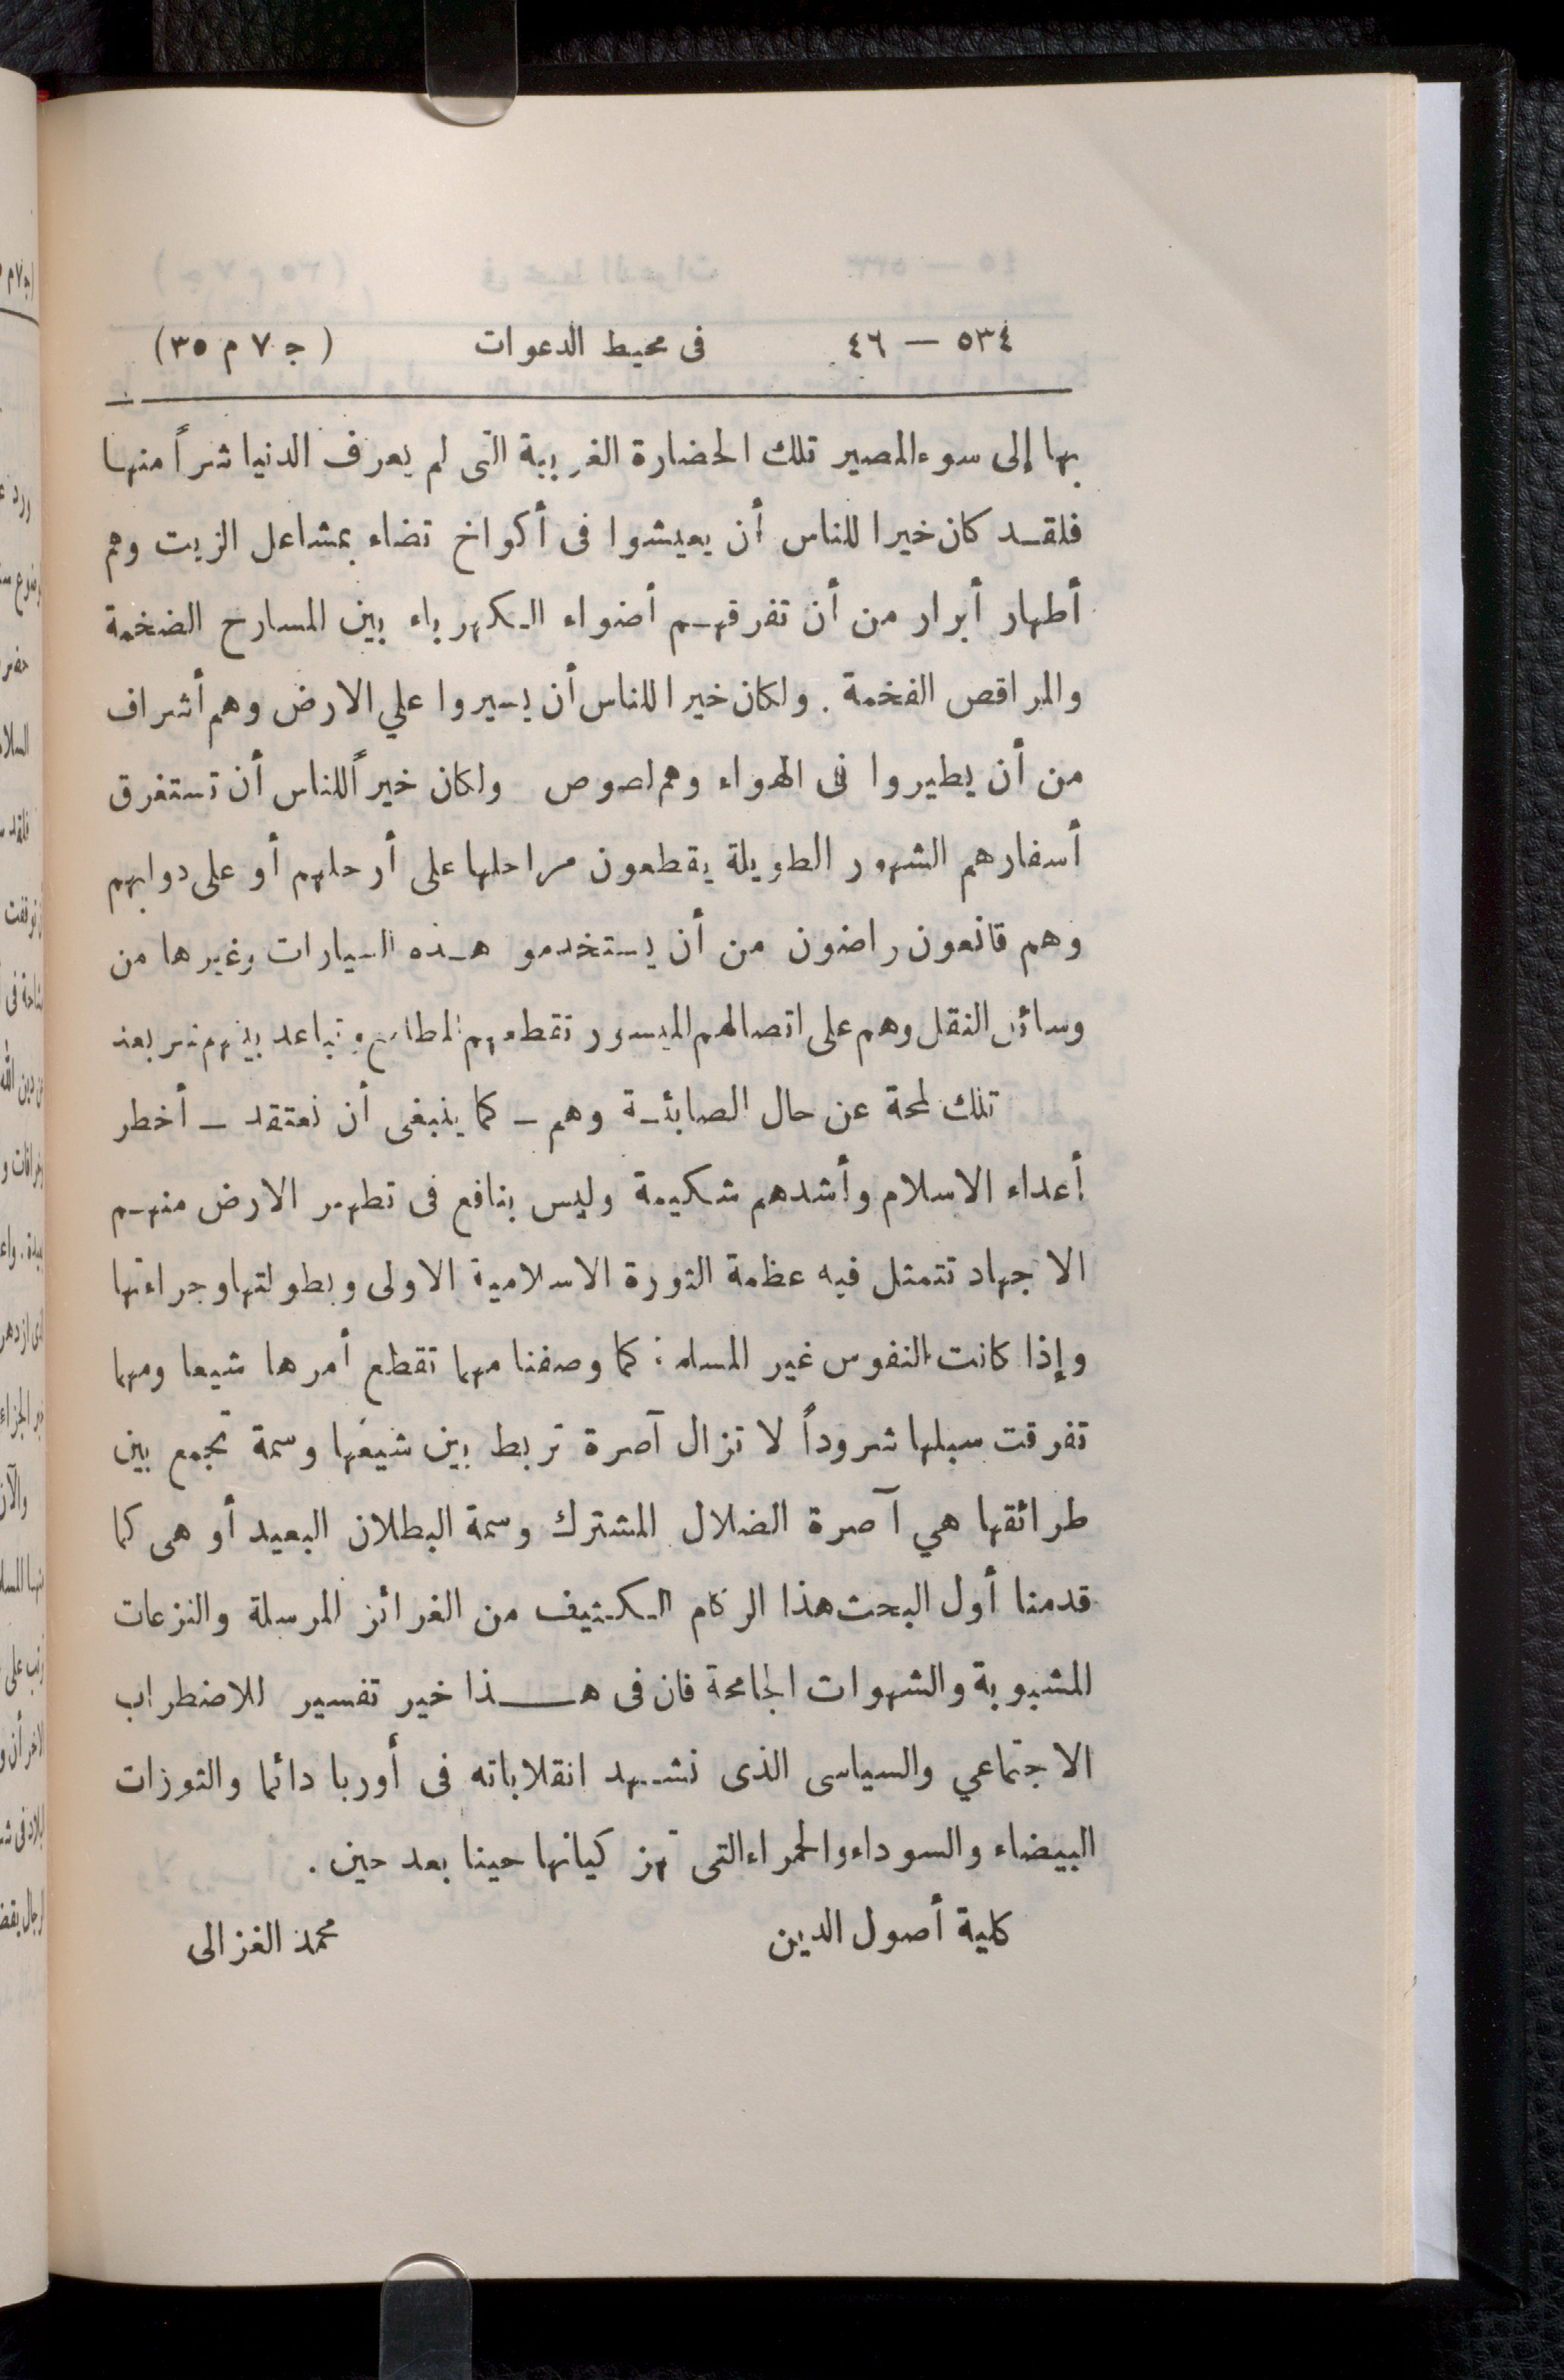 ٥٣٤ — ٤٦ فى محيط الدعوات (ج ٧ م ٣٥)
بها إلى سوء المصير تلك الحضارة الغربية التى لم يعرف الدنيا شراً منها
فلقد كان خيرا للناس أن يعيشوا فى أكواخ تضاء بمشاعل الزيت وهم
أطهار أبرار من أن تفرقهم أضواء الكهرباء بين المسارح الضخمة
والمراقص الفخمة . ولكان خيرا للناس أن يسيروا علي الارض وهم أشراف
من أن يطيروا فى الهواء وهم لصوص ولكان خيراً للناس أن تستغرق
أسفارهم الشهور الطويلة يقطعون مراحلها على أرحلهم أو على دوابهم
وهم قانعون راضون من أن يستخدمو هذه السيارات وغيرها من
وسائل النقل وهم على اتصالهم الميسور تقطعهم المطامع وتباعد بينهم شر بعد
تلك لمحة عن حال الصابئة وهم — كما ينبغى أن نعتقد — أخطر
أعداء الاسلام وأشدهم شكيمة وليس بنافع فى تطهير الارض منهم
الا جهاد تتمثل فيه عظمة الثورة الاسلامية الاولى وبطولتها وجراءتها
وإذا كانت النفوس غير المسلمة كما وصفنا مهما تقطع أمرها شيعا ومهما
تفرقت سبلها شروداً لا تزال آصرة تربط بين شيعها وسمة تجمع بين
طرائقها هي آصرة الضلال المشترك وسمة البطلان البعيد أو هى كما
قدمنا أول البحث هذا الركام الكثيف من الغرائز المرسلة والنزعات
المشبوبة والشهوات الجامحة فان فى هـــذا خير تفسير للاضطراب
الاجتماعي والسياسى الذى نشهد انقلاباته فى أوربا دائما والثورات
البيضاء والسوداء والحمراء التى تهز كيانها حينا بعد حين .
كلية أصول الدين محمد الغزالى